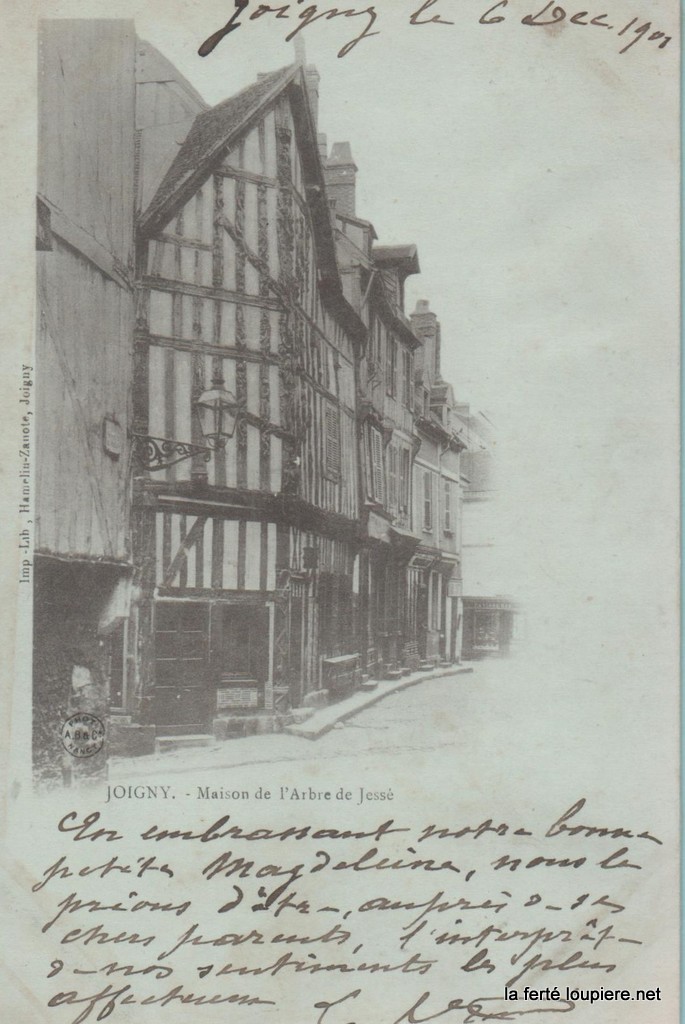 Joigny le 6 Dec. 1901
Imp -Lib, Hamelin-Zanote, Joigny
PHOT
A.B & Cie
NANCY
JOIGNY. - Maison de l'Arbre de Jessé
En embrassant notre bonne
petite Magdeleine, nous la
prions d'être, auprès de ses
chers parents, l'interprète
de nos sentiments les plus
affectueux
la ferté loupiere.net